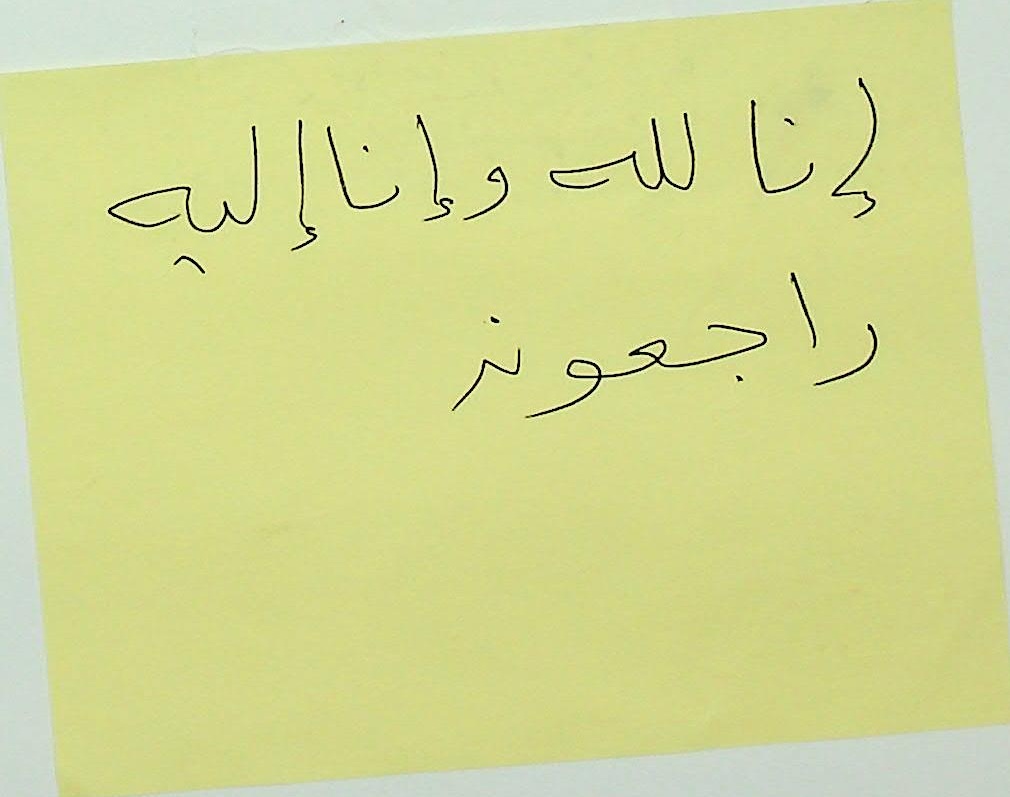 إنا لله وإنا إليه
راجعون